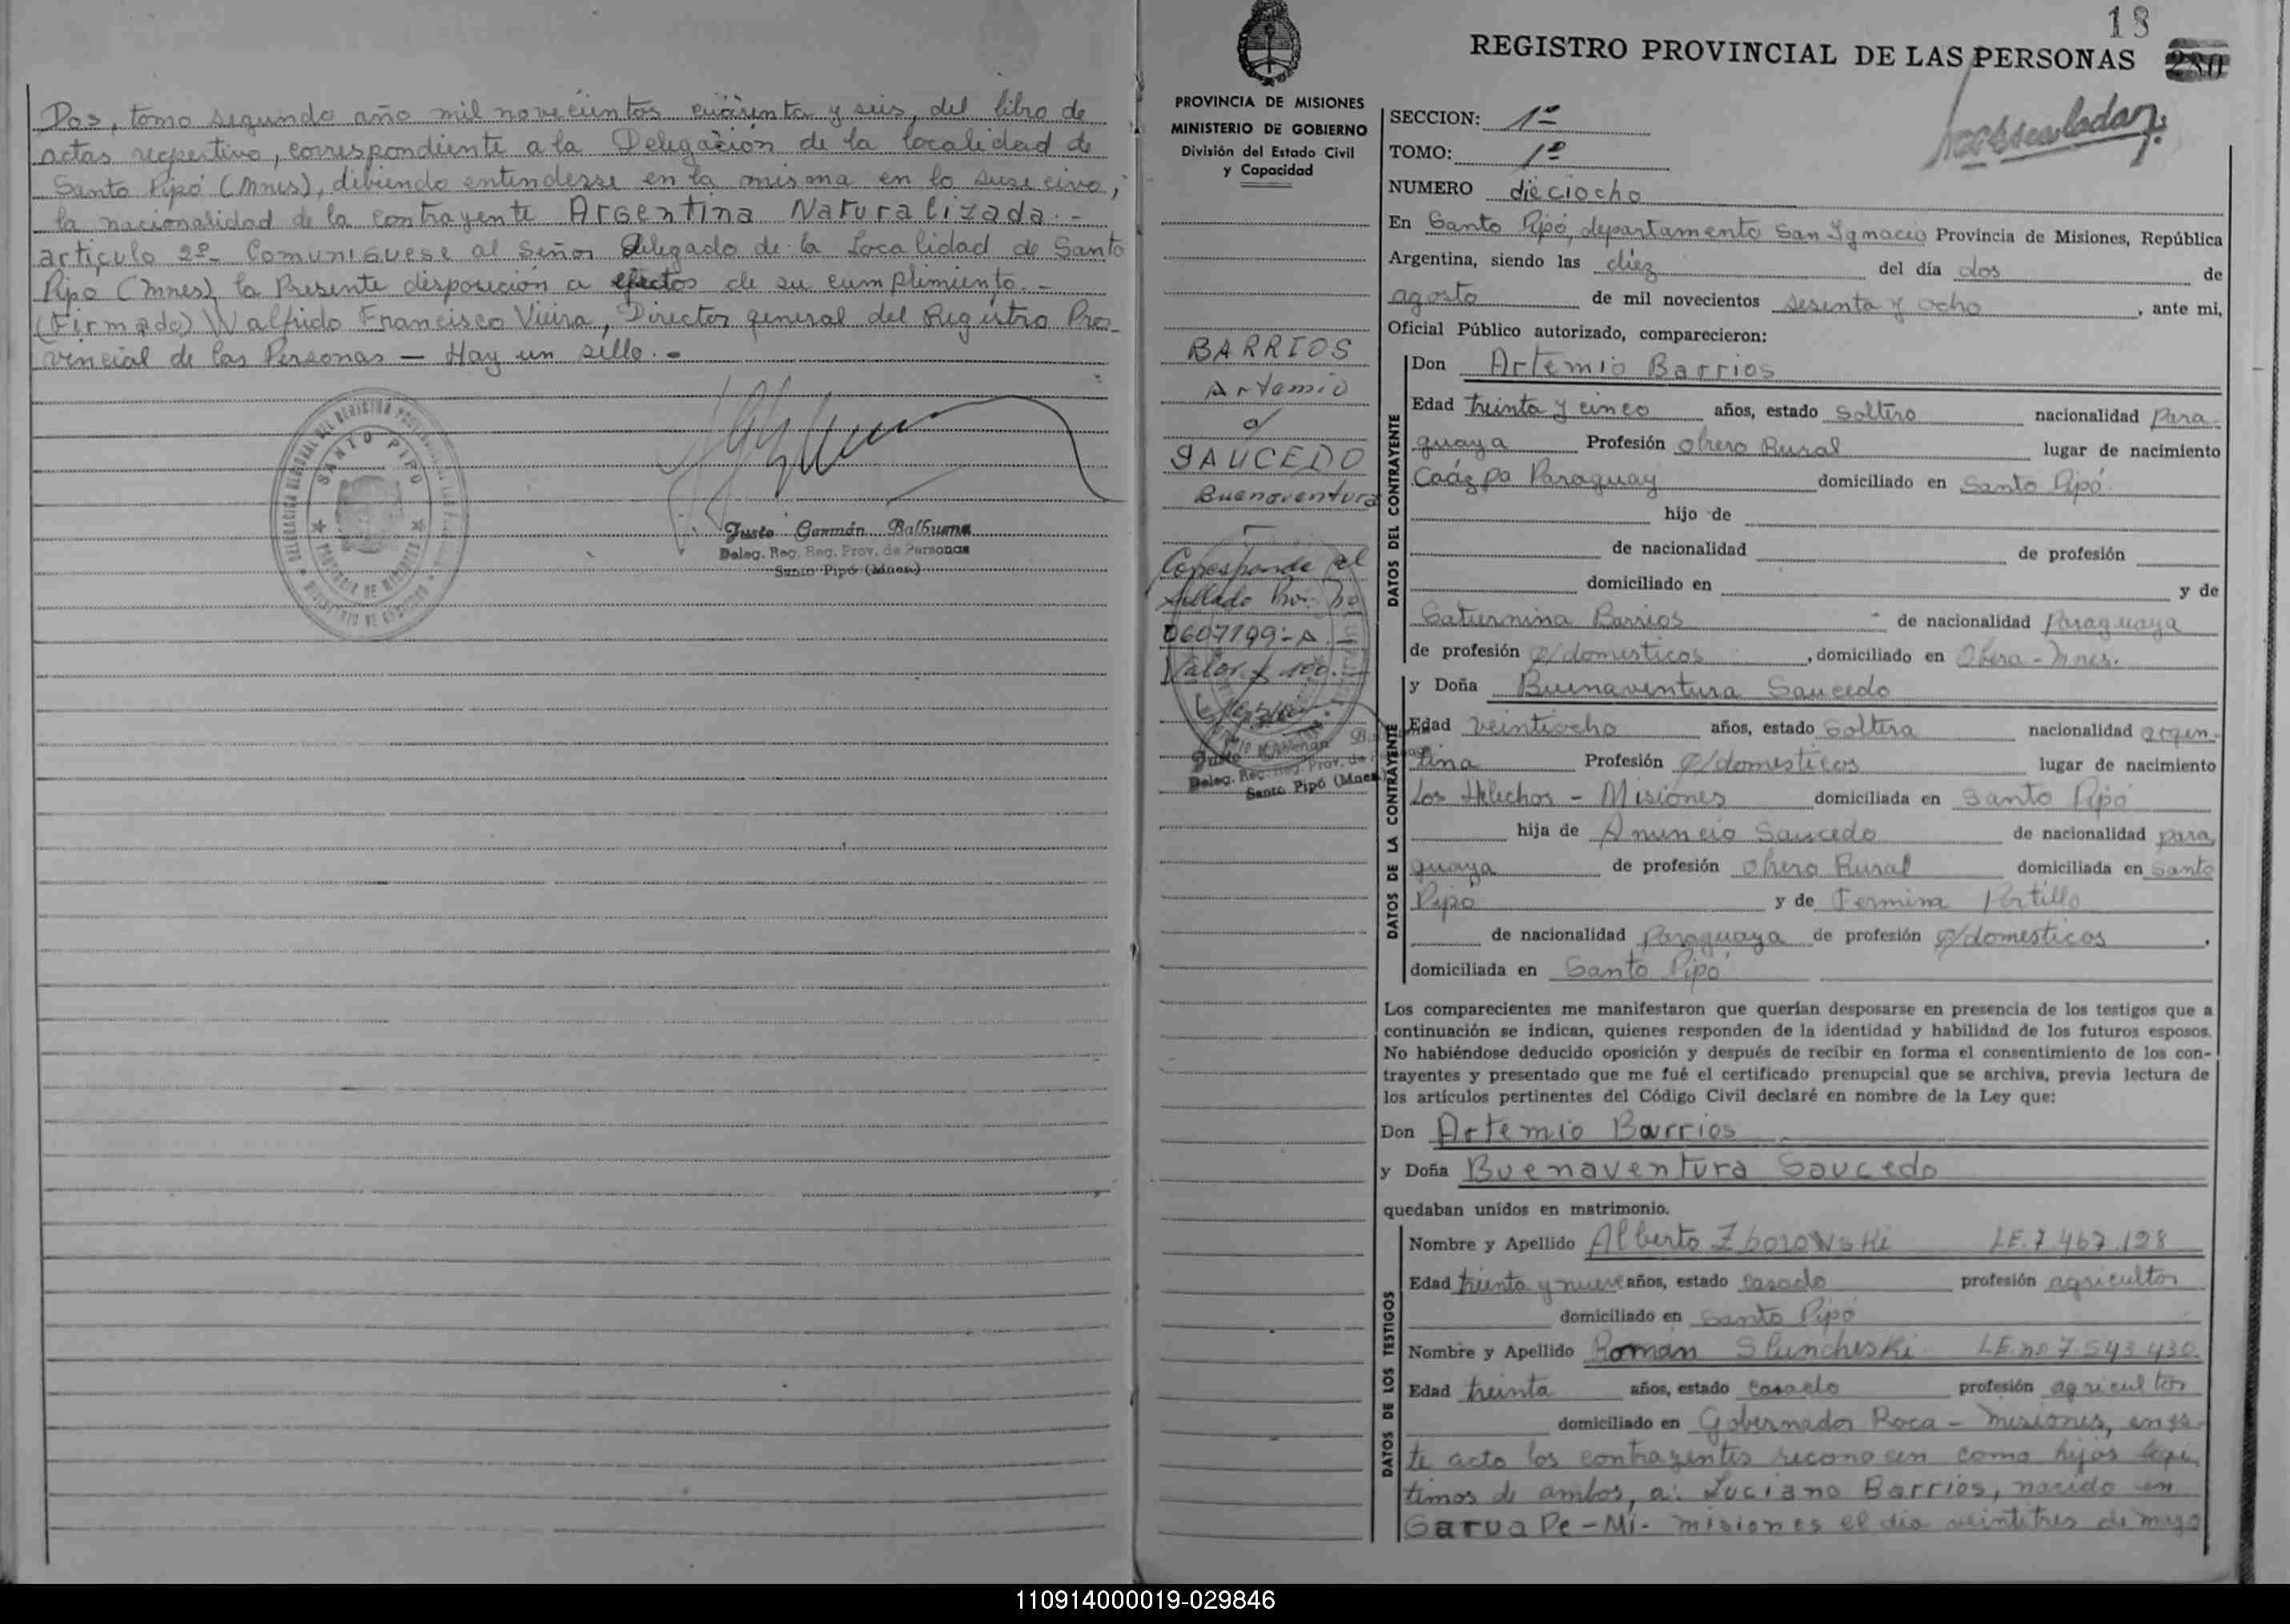 Dos, tomo segundo año mil novecientos cuarenta y seis, del libro de
actas respectivo, correspondiente a la Delegación de la localidad de
Santo Pipó (Mnes), debiendo entenderse en la misma en lo sucecivo,
la nacionalidad de la contrayente Argentina Naturalizada.-
articulo 2º- Comuniguese al Señor delegado de la Localidad de Santo
Pipo (Mnes) la Presente disposición a efectos de su cumplimiento.-
(Firmado) Walfrido Francisco Vieira, Director general del Registro Pro-
vincial de las Personas — Hay un sello.-
SANTO PIPO
PROVINCIA DE MISIONES
Justo Germán Balbuena
Deleg. Reg. Reg. Prov. de Personas
Santo Pipó (Mnes)
18
REGISTRO PROVINCIAL DE LAS PERSONAS
280
PROVINCIA DE MISIONES
MINISTERIO DE GOBIERNO
División del Estado Civil
y Capacidad
BARRIOS
Artemio
c/
SAUCEDO
Buenaventura
Corresponde al
Sellado Prov. no
0607199-A.-
Valor $ 100.-
Justo Germán
Deleg. Reg. Reg. Prov. de
Santo Pipó (Mnes
SECCION: 1º
TOMO: 1º
NUMERO dieciocho
En Santo Pipó, departamento San Ignacio Provincia de Misiones, República
Argentina, siendo las diez del día dos de
agosto de mil novecientos sesenta y ocho, ante mi,
Oficial Público autorizado, comparecieron:
DATOS DEL CONTRAYENTE
Don Artemio Barrios
Edad treinta y cinco años, estado soltero nacionalidad Para-
guaya Profesión Obrero Rural lugar de nacimiento
Caázpa Paraguay domiciliado en Santo Pipó
hijo de
de nacionalidad de profesión
domiciliado en y de
Saturnina Barrios de nacionalidad Paraguaya
de profesión q/domesticos, domiciliado en Obera-Mnes.
DATOS DE LA CONTRAYENTE
y Doña Buenaventura Saucedo
Edad veintiocho años, estado Soltera nacionalidad argen-
tina Profesión q/domesticos lugar de nacimiento
Los Helechos - Misiones domiciliada en Santo Pipó
hija de Anuncio Saucedo de nacionalidad para
guaya de profesión Obrero Rural domiciliada en Santo
Pipo y de Fermina Portillo
de nacionalidad Paraguaya de profesión q/domesticos,
domiciliada en Santo Pipó
Los comparecientes me manifestaron que querían desposarse en presencia de los testigos que a
continuación se indican, quienes responden de la identidad y habilidad de los futuros esposos.
No habiéndose deducido oposición y después de recibir en forma el consentimiento de los con-
trayentes y presentado que me fué el certificado prenupcial que se archiva, previa lectura de
los artículos pertinentes del Código Civil declaré en nombre de la Ley que:
Don Artemio Barrios
y Doña Buenaventura Saucedo
quedaban unidos en matrimonio.
DATOS DE LOS TESTIGOS
Nombre y Apellido Alberto Zborowski LE.7.467.128
Edad treinta y nueve años, estado casado profesión agricultor
domiciliado en Santo Pipó
Nombre y Apellido Román Sluncheski LE.nº 7.543.430.
Edad treinta años, estado casado profesión agricultor
domiciliado en Gobernador Roca - Misiones, en es-
te acto los contrayentes reconocen como hijos legi-
timos de ambos, a: Luciano Barrios, nacido en
Garua Pe - Mi- misiones el dia veintitres de mayo
110914000019-029846